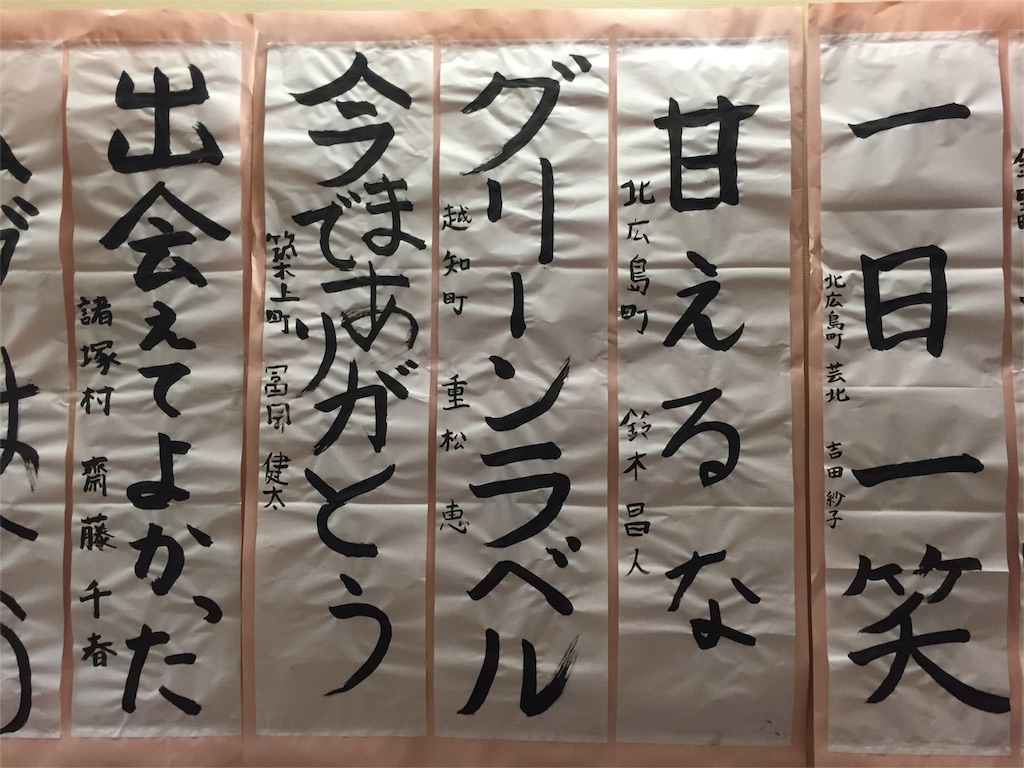 一日一笑
北広島町 芸北 吉田 紗子
甘えるな
北広島町 鈴木 昌人
グリーンラベル
越知町 重松 恵
今まで
ありがとう
築上町 冨田 健太
出会えてよかった
諸塚村 齋藤 千春